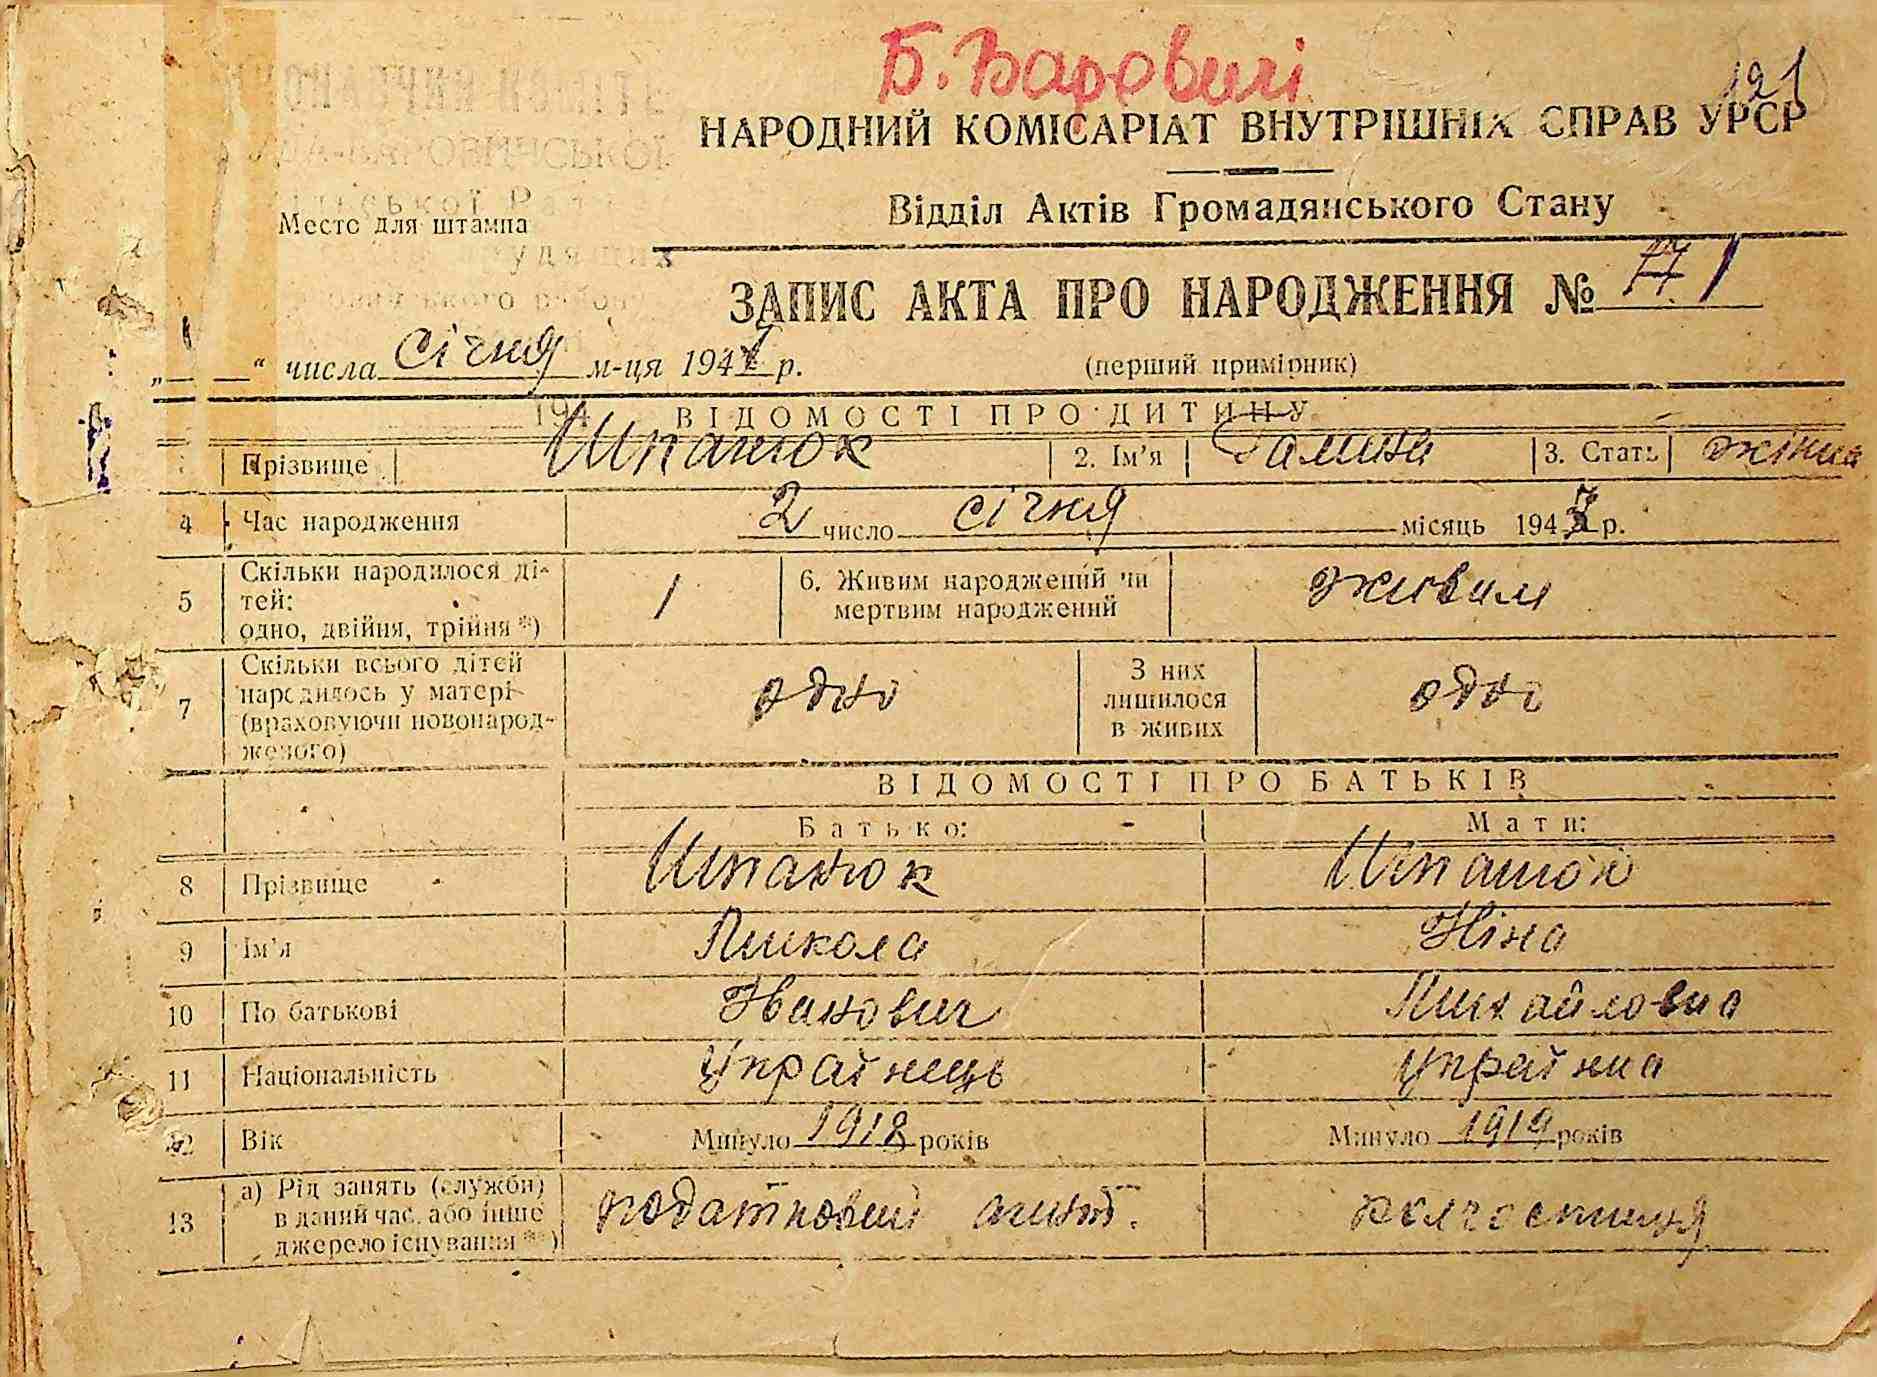 Б. Варовичі
121
НАРОДНИЙ КОМІСАРІАТ ВНУТРІШНІХ СПРАВ УРСР
Відділ Актів Громадянського Стану
Место для штампа
ЗАПИС АКТА ПРО НАРОДЖЕННЯ № 1
„ “ числа січня м-ця 1947 р. (перший примірник)
ВІДОМОСТІ ПРО ДИТИНУ
Прізвище Шпанюк 2. Ім'я Галина 3. Стать жіноча
4 Час народження 2 число січня місяць 1947 р.
5 Скільки народилося дітей: одно, двійня, трійня *) 1 6. Живим народжений чи мертвим народжений живим
7 Скільки всього дітей народилось у матері (враховуючи новонародженого) одно З них лишилося в живих одно
ВІДОМОСТІ ПРО БАТЬКІВ
Батько: Мати:
8 Прізвище Шпанюк Шпанюк
9 Ім'я Микола Ніна
10 По батькові Іванович Михайловна
11 Національність Українець Українка
12 Вік Минуло 1918 років Минуло 1919 років
13 а) Рід занять (служби) в даний час, або інше джерело існування **) податковий агент. колгоспниця